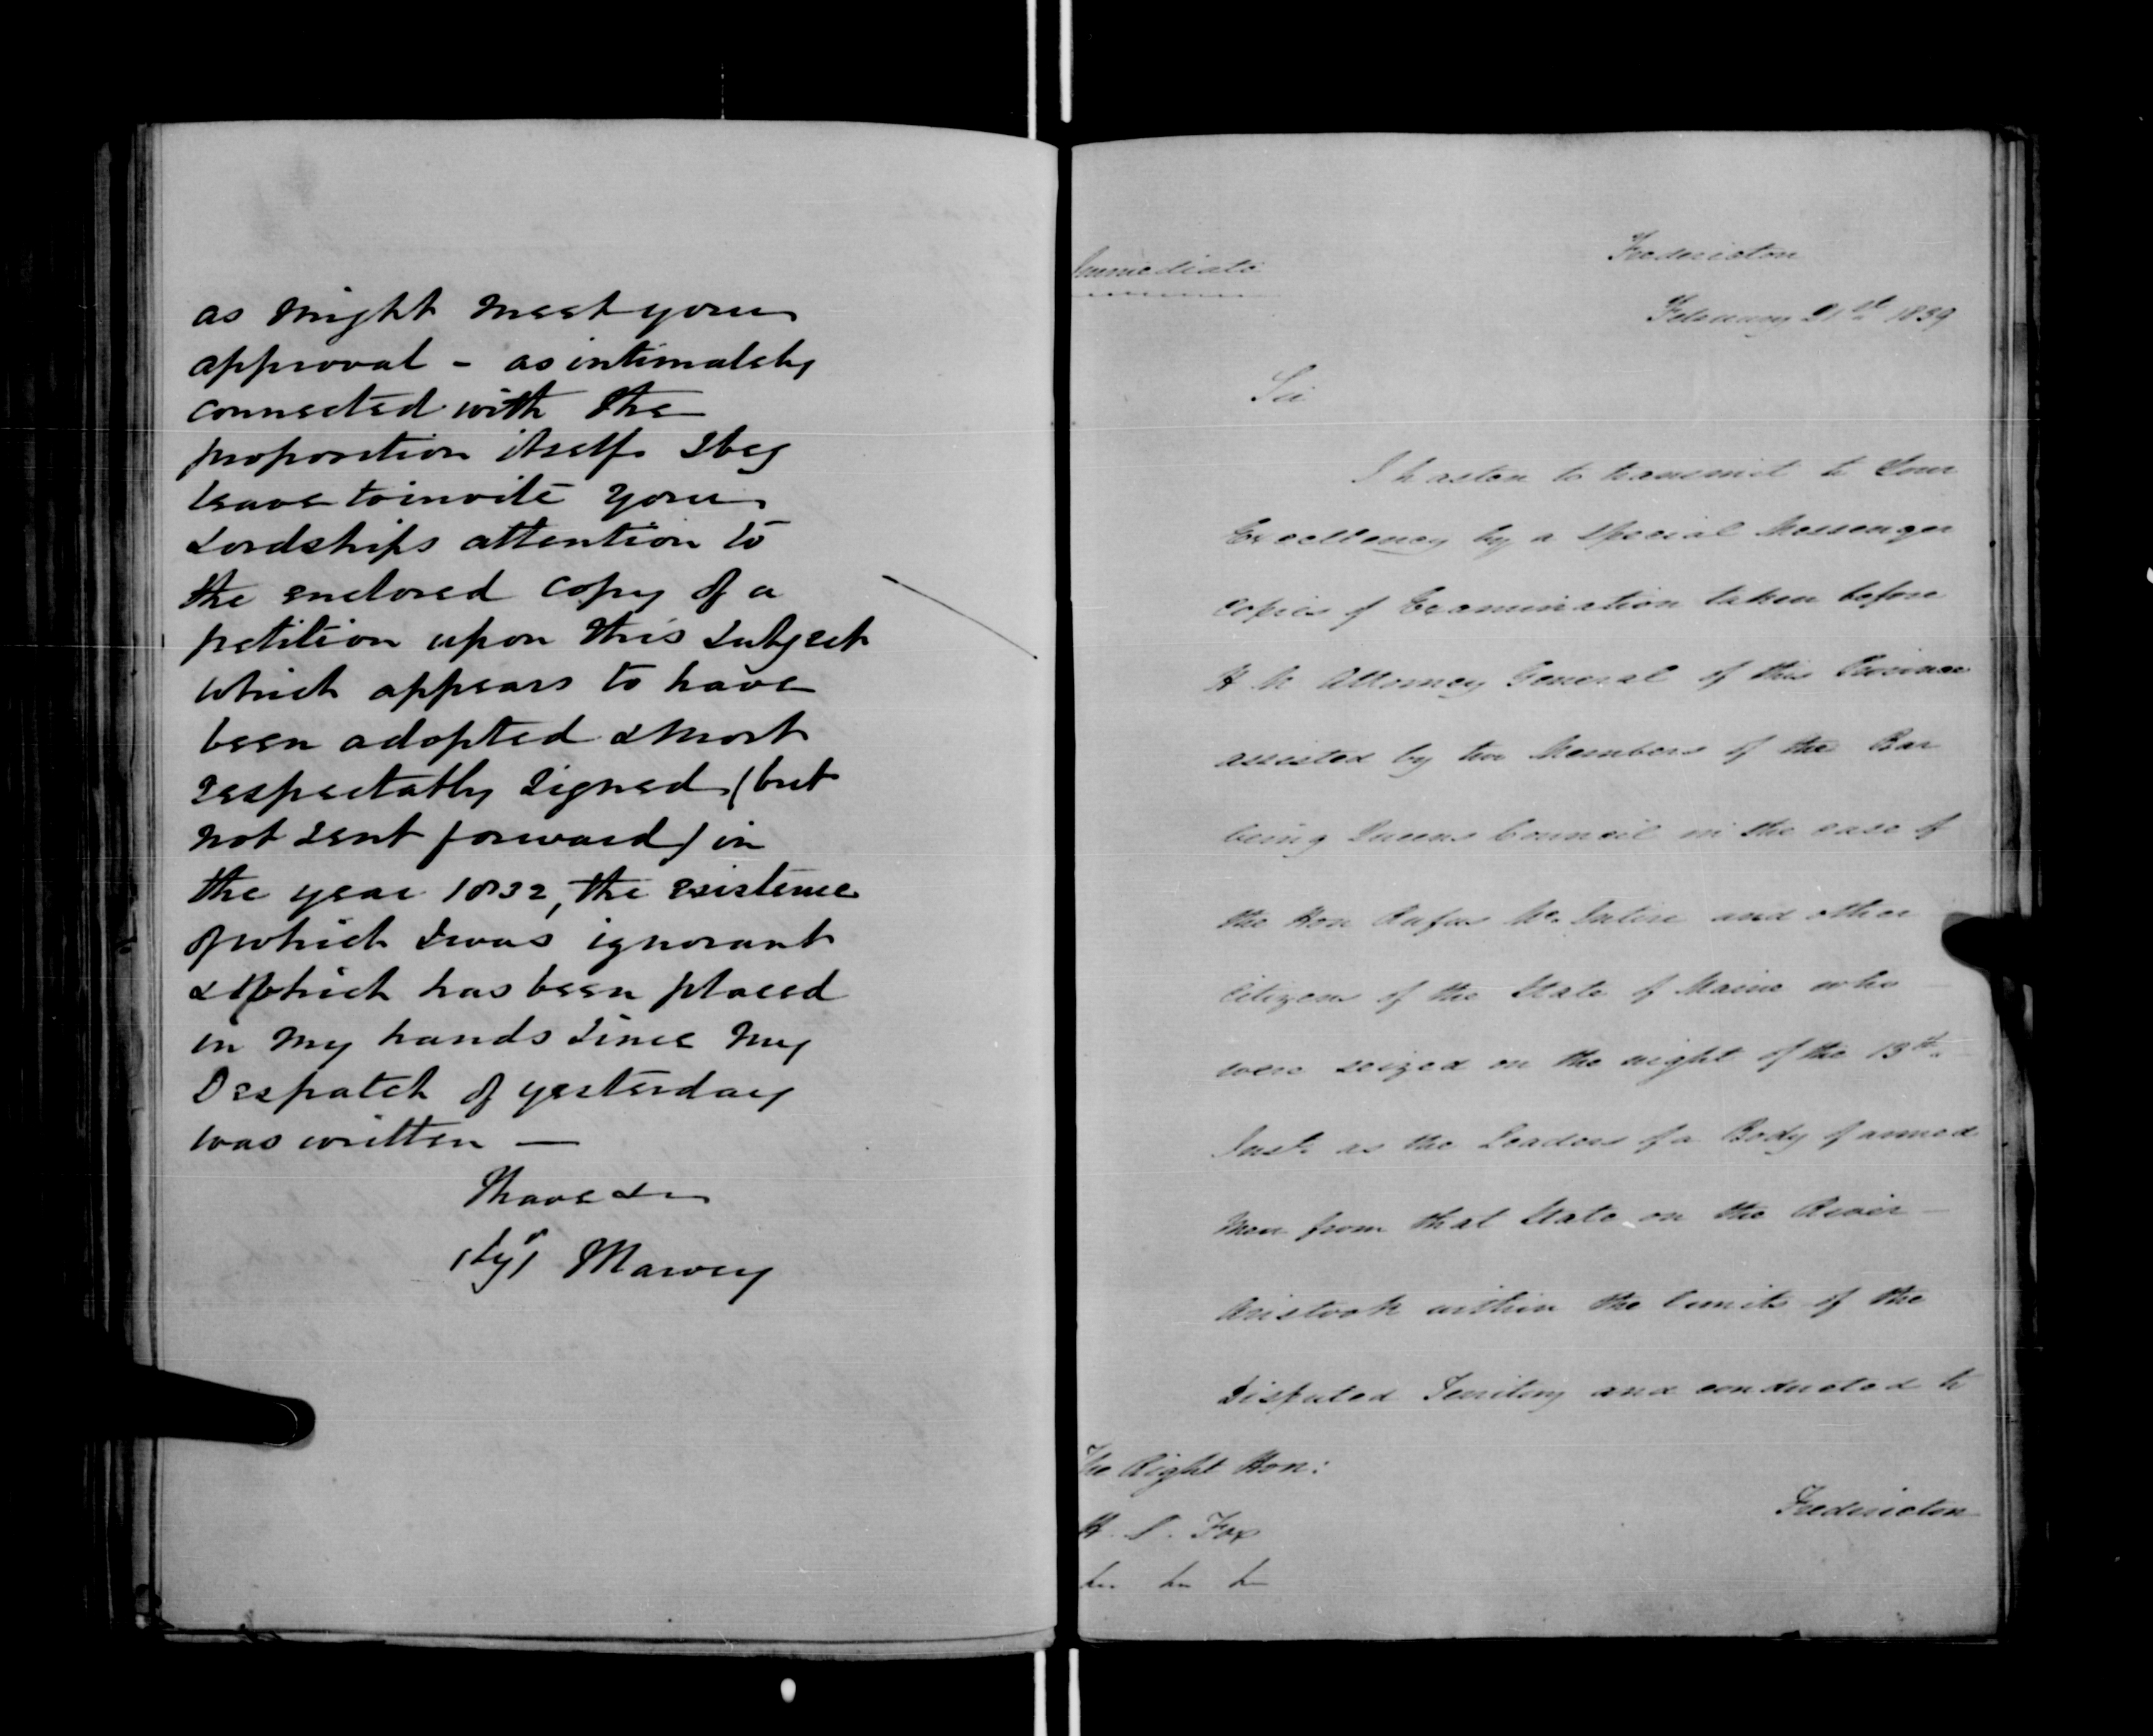 as might meet your
approval - as intimately
connected with the
proposition itself I beg
leave to invite your
Lordships attention to
the enclosed copy of a
petition upon this subject
which appears to have
been adopted & most
respectably signed (but
not sent forward) in
the year 1832, the existence
of which I was ignorant
& which has been placed
in my hands since my
Despatch of yesterday
was written —
I have &c
(Sgd) Harvey
Immediate
Fredericton
February 21st 1839
Sir
I hasten to transmit to Your
Excellency by a Special Messenger
Copies of Examination taken before
H M Attorney General of this Province
assisted by two Members of the Bar
being Queens Council in the case of
the Hon Rufus McIntire and other
Citizens of the State of Maine who
were seized on the night of the 13th
Inst. as the Leaders of a Body of armed
Men from that State on the River
Aristook within the limits of the
Disputed Territory and conducted to
The Right Hon:
H. S. Fox
&c &c &c
Fredericton